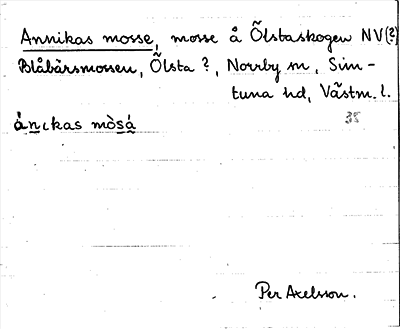 Annikas mosse, mosse å Õlstaskogen NV(?)
Blåbärsmossen, Õlsta?, Norrby sn, Sim-
tuna hd, Västm. l.
ánıkas mòsá
35
Per Axelsson.